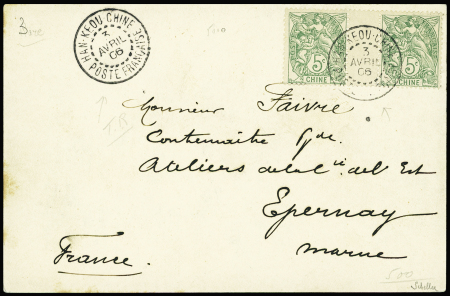 3
HAN-KEOU-CHINE
3
AVRIL
06
POSTE FRANÇAISE
5c
CHINE
5c
CHINE
HAN-KEOU-CHINE
3
AVRIL
06
T.B
Monsieur Faivre
Contremaître Pde
Ateliers de la Cie de l'Est
Epernay
France. Marne
500